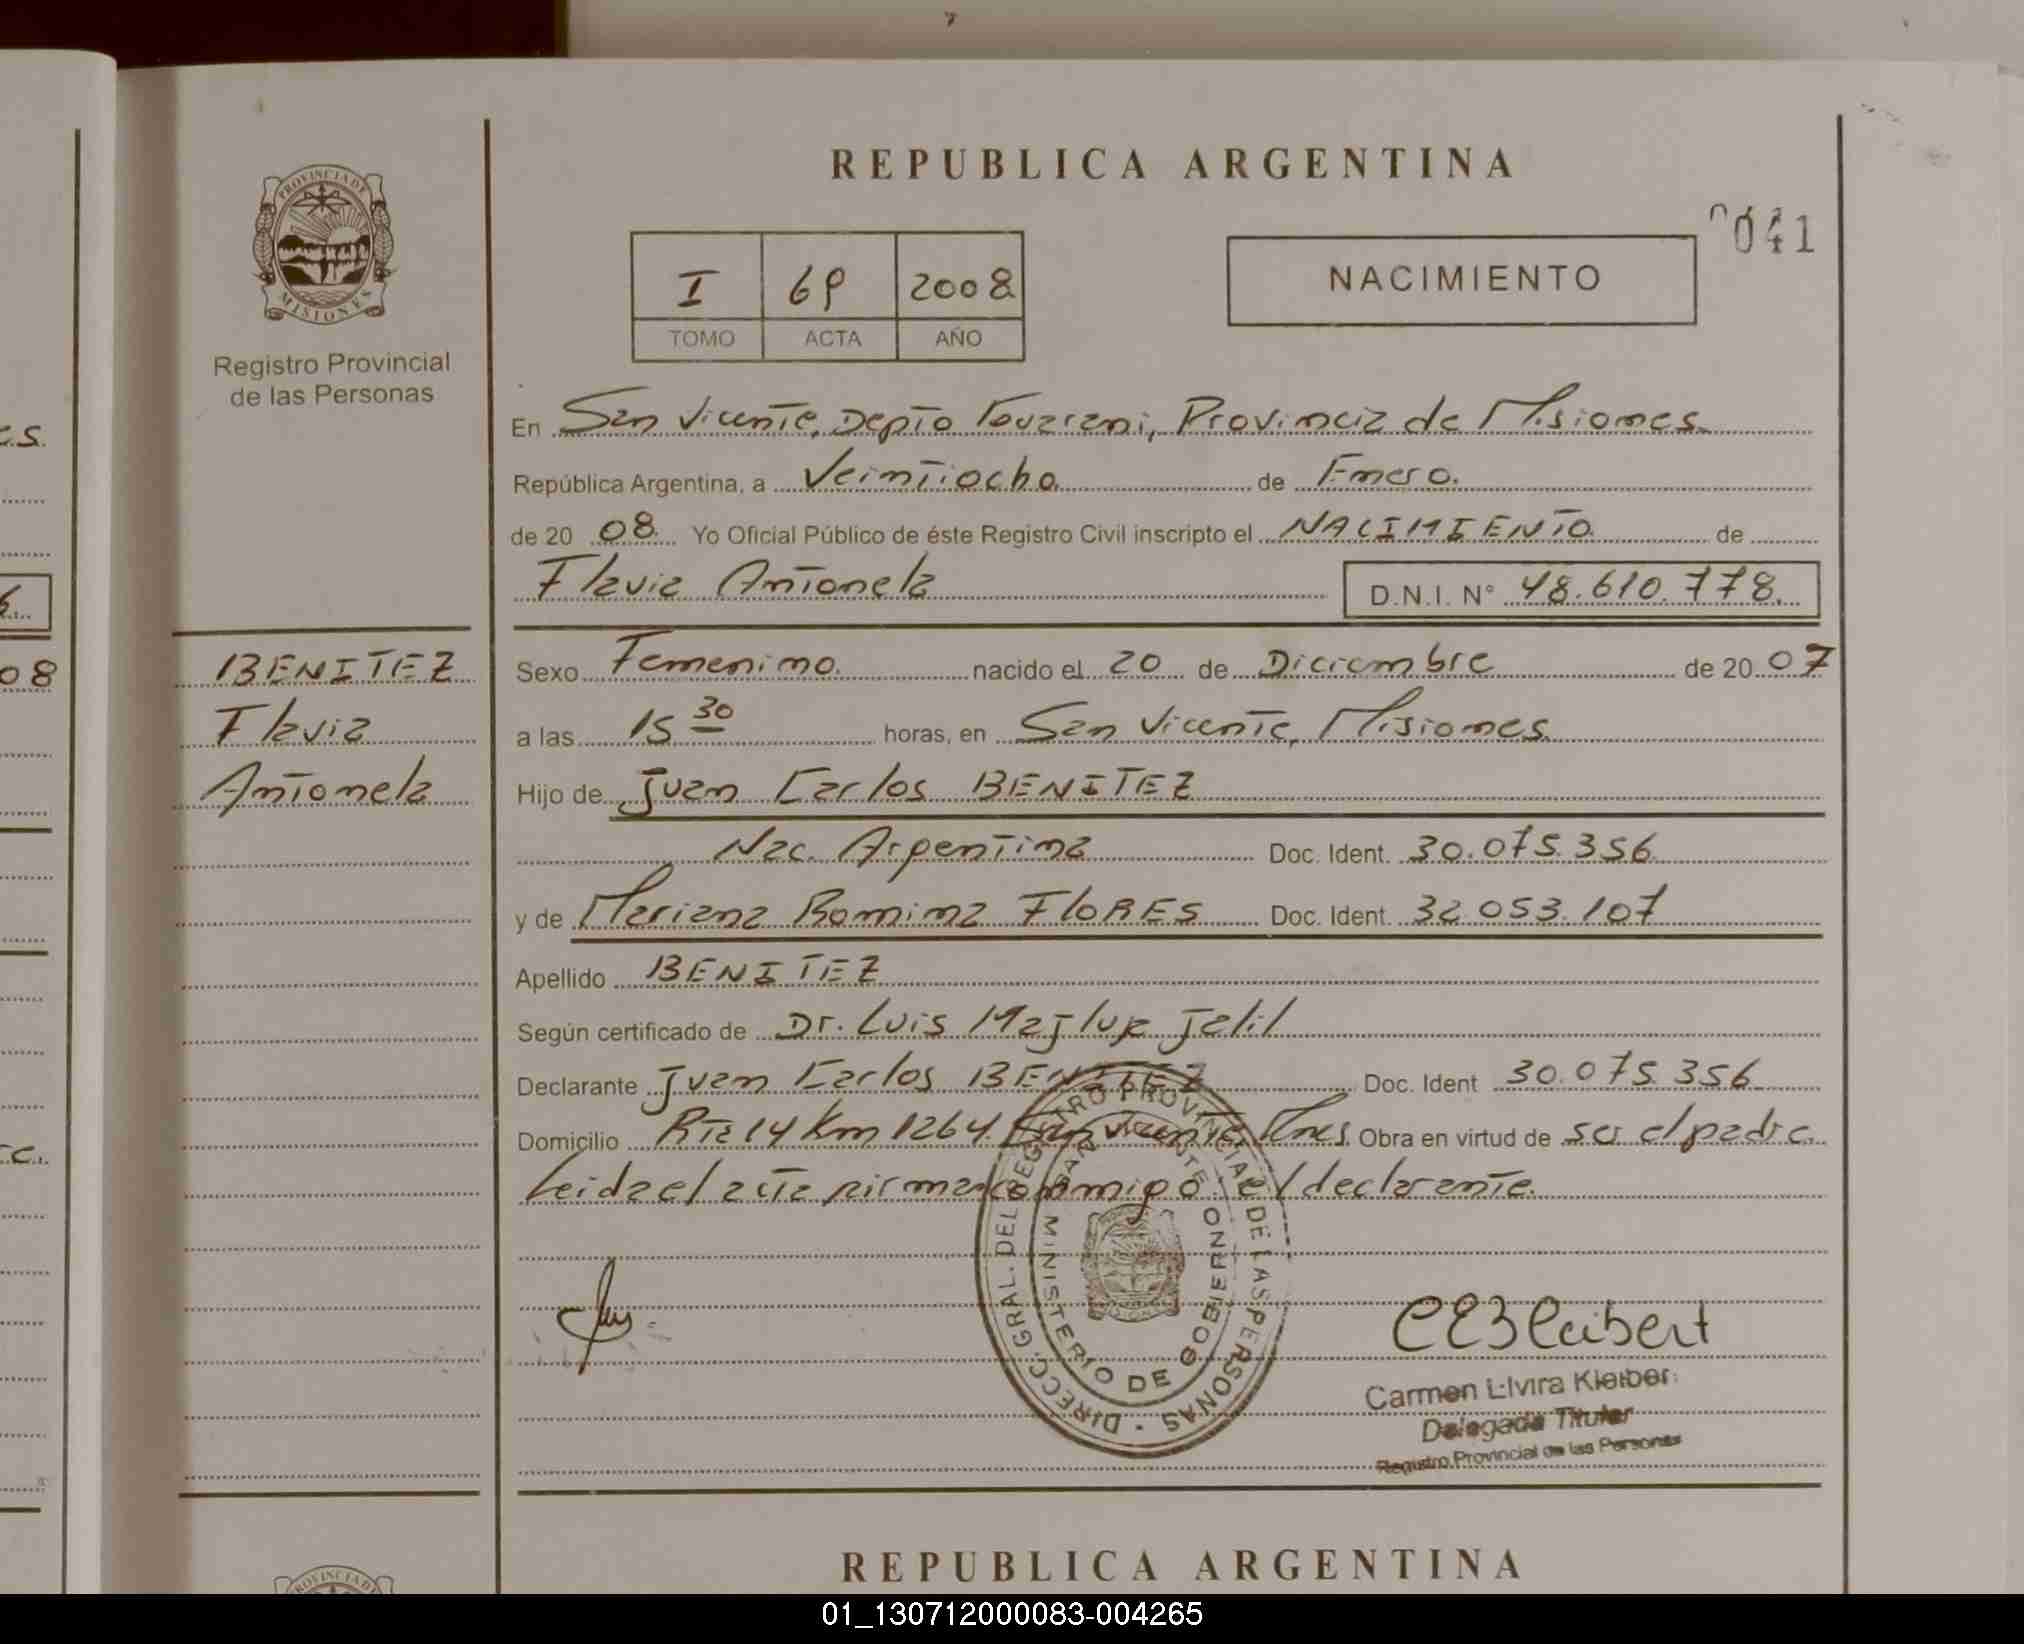 REPUBLICA ARGENTINA
041
PROVINCIA DE
MISIONES
Registro Provincial
de las Personas
I 69 2008
TOMO ACTA AÑO
NACIMIENTO
En San Vicente, Depto Guarani, Provincia de Misiones
República Argentina, a Veintiocho de Enero.
de 20 08. Yo Oficial Público de éste Registro Civil inscripto el NACIMIENTO de
Flavia Antonela D.N.I. N° 48.610.778.
BENITEZ
Flavia
Antonela
Sexo Femenino. nacido el 20 de Diciembre de 20 07
a las 15 30 horas, en San Vicente, Misiones.
Hijo de Juan Carlos BENITEZ
Nac. Argentina Doc. Ident. 30.075.356
y de Mariana Romina FLORES Doc. Ident. 32.053.107
Apellido BENITEZ
Según certificado de Dr. Luis Majlup Jalil
Declarante Juan Carlos BENITEZ Doc. Ident 30.075.356
Domicilio Rta 14 Km 1264 San Vicente Mnes. Obra en virtud de ser el padre.
Leida el acta firma conmigo el declarante.
DIRECC. GRAL. DEL REGISTRO PROVINCIAL DE LAS PERSONAS
MINISTERIO DE GOBIERNO
SAN VICENTE
Carmen Elvira Kleiber
Delegada Titular
Registro Provincial de las Personas
REPUBLICA ARGENTINA
PROVINCIA D
s.
08
01_130712000083-004265